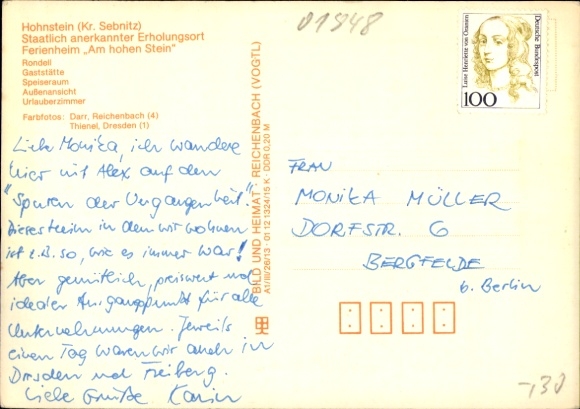 Hohnstein (Kr. Sebnitz)
Staatlich anerkannter Erholungsort
Ferienheim „Am hohen Stein"
Rondell
Gaststätte
Speiseraum
Außenansicht
Urlauberzimmer
Farbfotos: Darr, Reichenbach (4)
Thienel, Dresden (1)
Liebe Monika, ich wandere
hier mit Alex auf den
"Spuren der Vergangenheit".
Dieses Heim in dem wir wohnen
ist z.B. so, wie es immer war!
Aber gemütlich, preiswert und
idealer Ausgangspunkt für alle
Unternehmungen. Jeweils
einen Tag waren wir auch in
Dresden und Freiberg.
Liebe Grüße Karin
BILD UND HEIMAT · REICHENBACH (VOGTL)
A1/III/26/13 · 01 12 1324/15 K · DDR 0,20 M
01848
Luise Henriette von Oranien
Deutsche Bundespost
100
FRAU
MONIKA MÜLLER
DORFSTR. 6
BERGFELDE
b. Berlin
-130